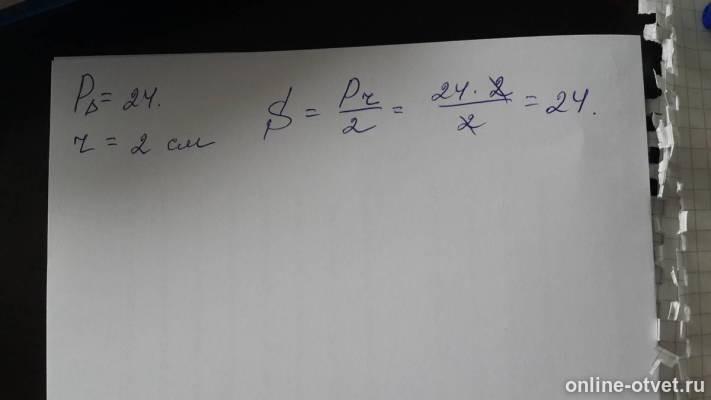 P△ = 24.
r = 2 см
S = Pr/2 = 24·2/2 = 24.
online-otvet.ru